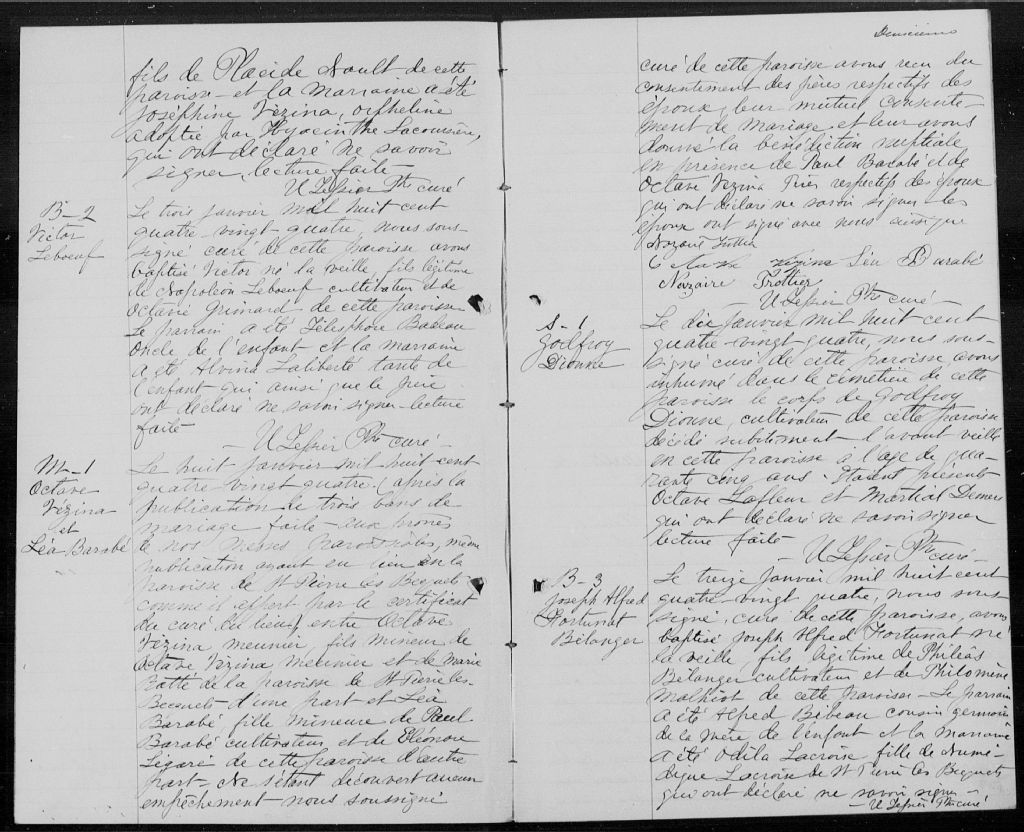 fils de Placide Nault de cette
paroisse et la marraine a été
Joséphine Vézina, orpheline
adoptée par Hyacinthe Lacoursière,
qui ont déclaré ne savoir
signer, lecture faite
U Tessier Ptre curé
B-2
Victor
Leboeuf
Le trois janvier mil huit cent
quatre-vingt quatre, nous sous-
signé curé de cette paroisse avons
baptisé Victor né la veille, fils légitime
de Napoléon Leboeuf cultivateur et de
Octavie Grimard de cette paroisse
Le parrain a été Télesphore Badeau
Oncle de l'enfant et la marraine
a été Alvina Laliberté tante de
l'enfant qui ainsi que le père
ont déclaré ne savoir signer - lecture
faite -
- U Tessier Ptre curé -
M-1
Octave
Vézina
et
Léa Barabé
Le huit janvier mil huit cent
quatre vingt quatre, après la
publication de trois bans de
mariage faite aux prones
de nos messes paroissiales, même
publication ayant eu lieu en la
paroisse de St Pierre les Becquets
comme il appert par le certificat
du curé du lieu, entre Octave
Vézina meunier, fils mineur de
Octave Vézina meunier et de Marie
Ratté de la paroisse de St Pierre les-
Becquets d'une part et Léa
Barabé fille mineure de Paul
Barabé cultivateur et de Eléonore
Légaré de cette paroisse d'autre
part - Ne s'étant découvert aucun
empêchement nous soussigné
Deuxième
curé de cette paroisse avons reçu du
consentement des pères respectifs des
époux, leur mutuel consente-
ment de mariage et leur avons
donné la bénédiction nuptiale
en présence de Paul Barabé et de
Octave Vézina Pères respectifs des époux
qui ont déclaré ne savoir signer - les
époux ont signé avec nous ainsi que
Nazaire Trottier
Octave Vézina Léa Barabé
Nazaire Trottier
- U Tessier Ptre curé -
S-1
Godfroy
Dionne
Le dix janvier mil huit cent
quatre-vingt quatre, nous sous-
signé curé de cette paroisse avons
inhumé dans le cimetière de cette
paroisse le corps de Godfroy
Dionne, cultivateur de cette paroisse
décédé subitement l'avant veille
en cette paroisse à l'age de qua-
rante cinq ans. Etaient présents
Octave Lafleur et Martial Demers
qui ont déclaré ne savoir signer
lecture faite -
- U Tessier Ptre curé -
B-3
Joseph Alfred
Fortunat
Bélanger
Le treize janvier mil huit cent
quatre-vingt quatre, nous sous
signé, curé de cette paroisse, avons
baptisé Joseph Alfred Fortunat né
la veille, fils légitime de Philéas
Bélanger cultivateur et de Philomène
Malhiot de cette paroisse - Le parrain
a été Alfred Bibeau cousin germain
de la mère de l'enfant et la marraine
a été Odila Lacroix, fille de Numé-
dique Lacroix de St Pierre les Becquets
qui ont déclaré ne savoir signer -
- U Tessier Ptre curé